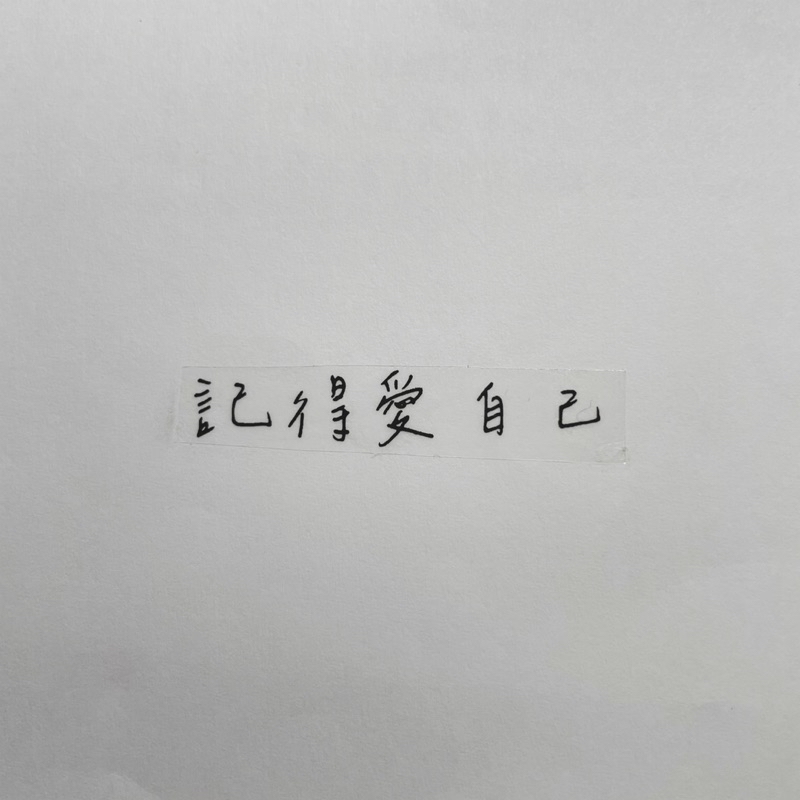 記得愛自己